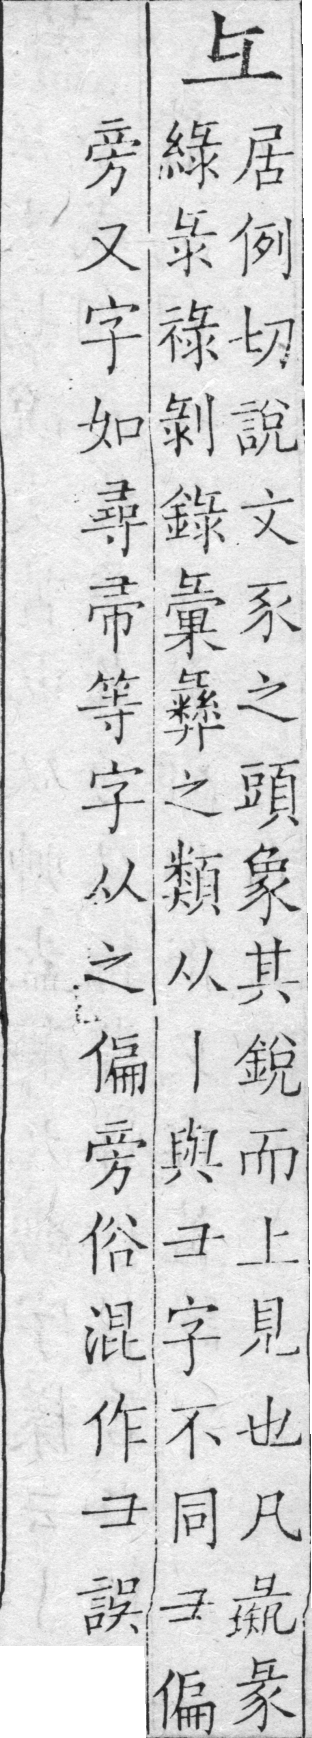 彑
居例切說文豕之頭象其銳而上見也凡彖
綠彔祿剝錄彚彝之類从丨與彐字不同彐偏
旁又字如尋帚等字从之偏旁俗混作彐誤